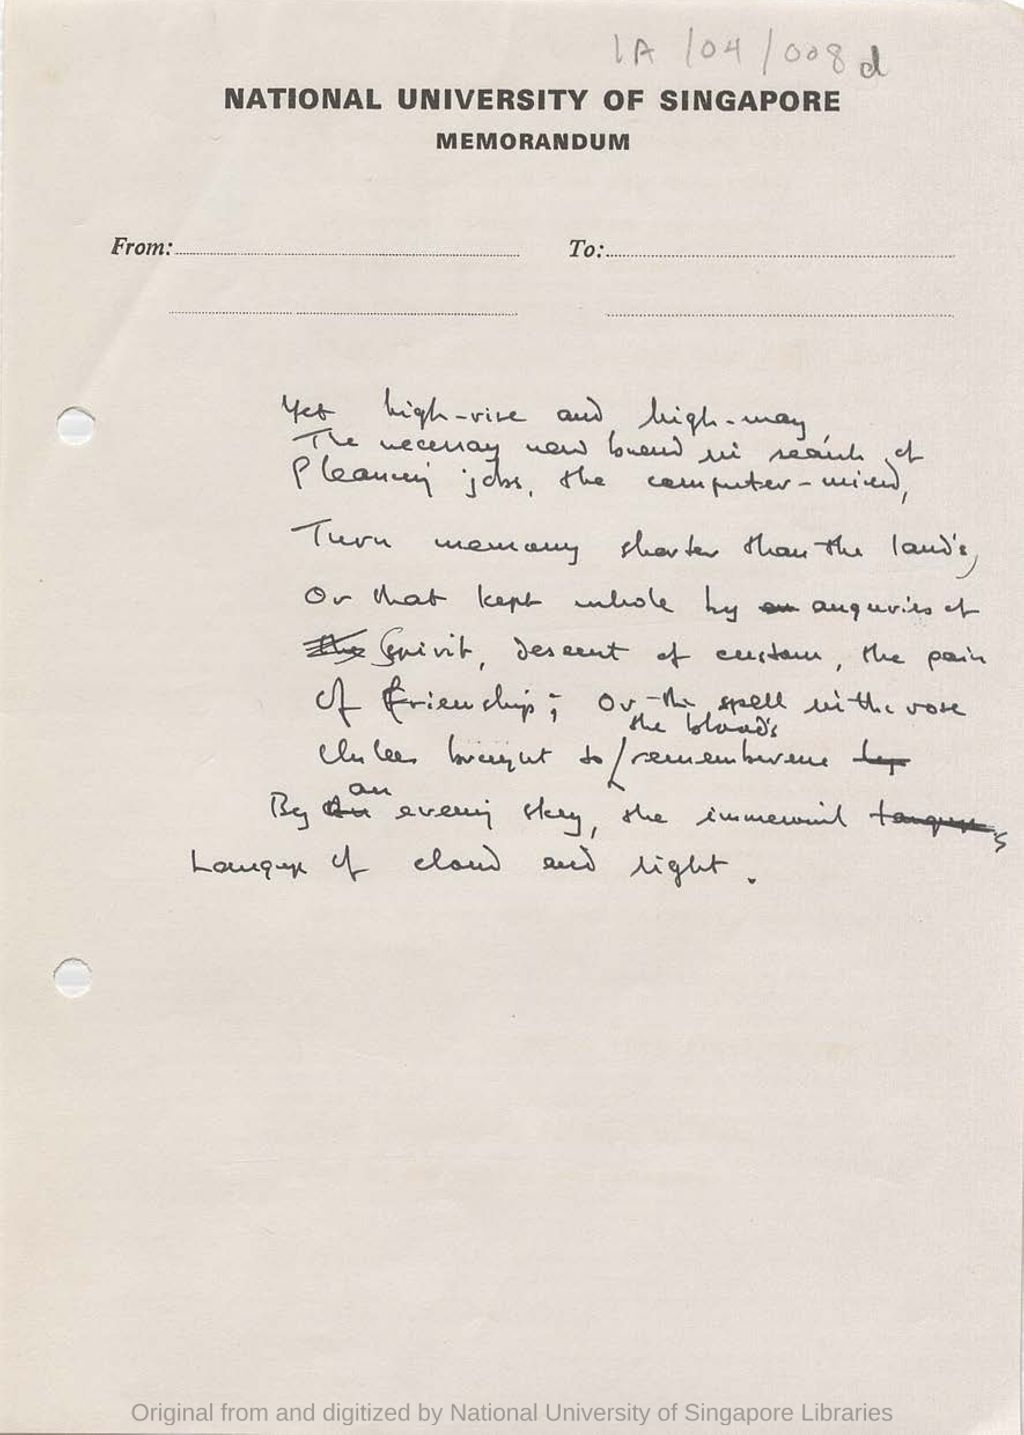 1A/04/008d
NATIONAL UNIVERSITY OF SINGAPORE
MEMORANDUM
From: To:
Yet high-rise and high-way,
The necessary new brand in search of
Pleasing jobs, the computer-mind,
Turn memory shorter than the land's,
Or that kept whole by an auguries of
the Spirit, descent of custom, the pain
Of friendship; Or the spell in the rose
the blood's
brought to remembrance by
an
By an evening sky, the immemorial tongues
Langugs of cloud and light.
Original from and digitized by National University of Singapore Libraries